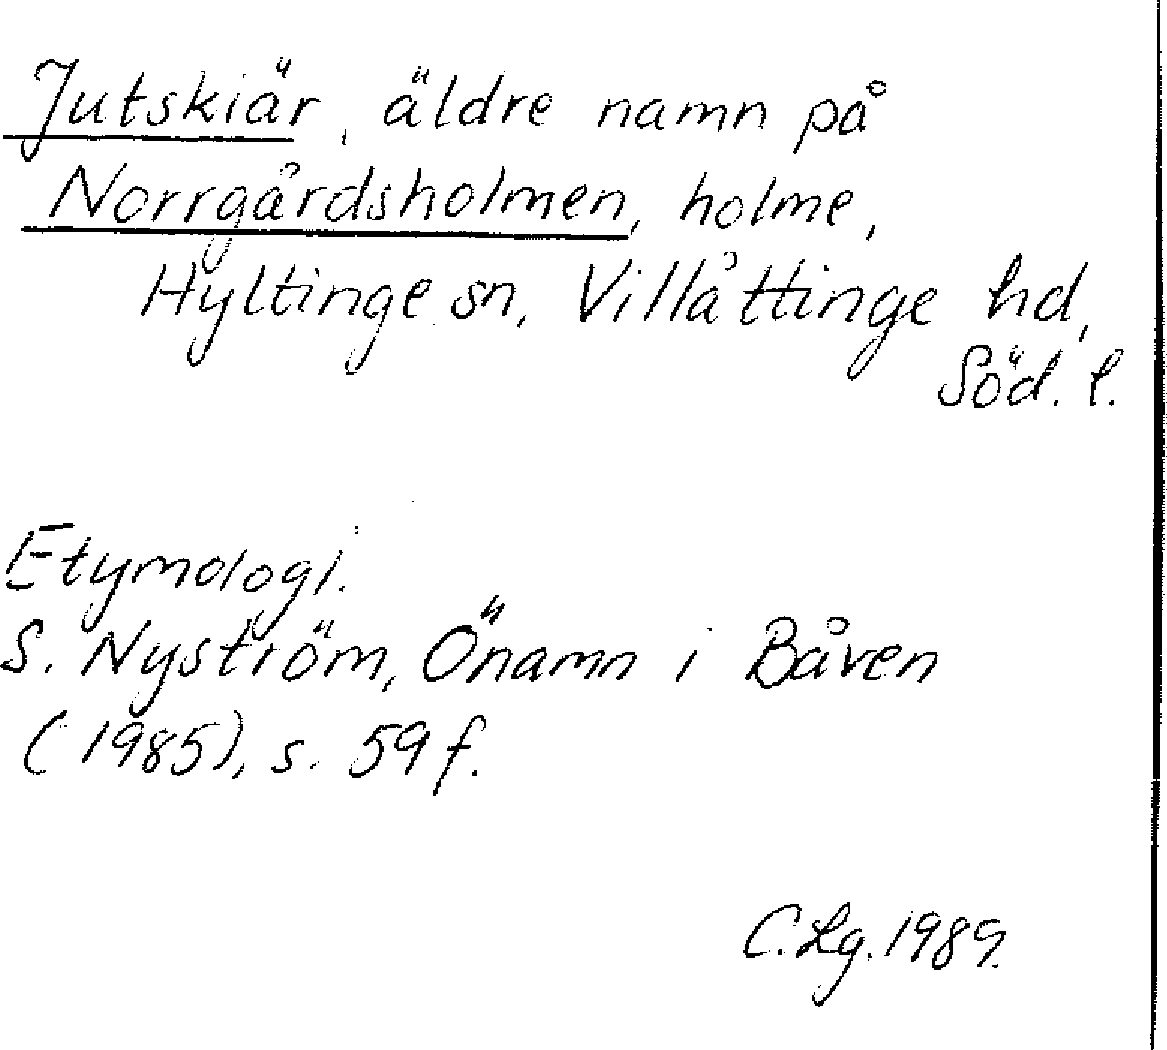 Jutskiär, äldre namn på
Norrgårdsholmen, holme,
Hyltinge sn, Villåttinge hd,
Söd. l.
Etymologi.
S. Nyström, Önamn i Båven
(1985), s. 59 f.
C. Lg. 1989.